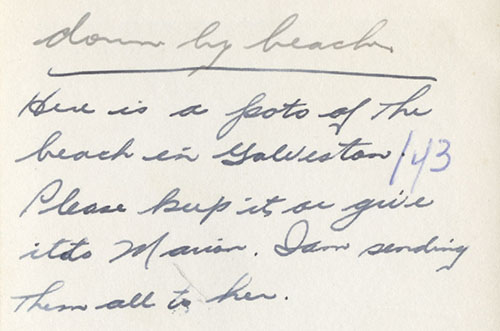 down by beach
Here is a foto of the
beach in Galveston.
143
Please keep it or give
itto Marion. I am sending
them all to her.